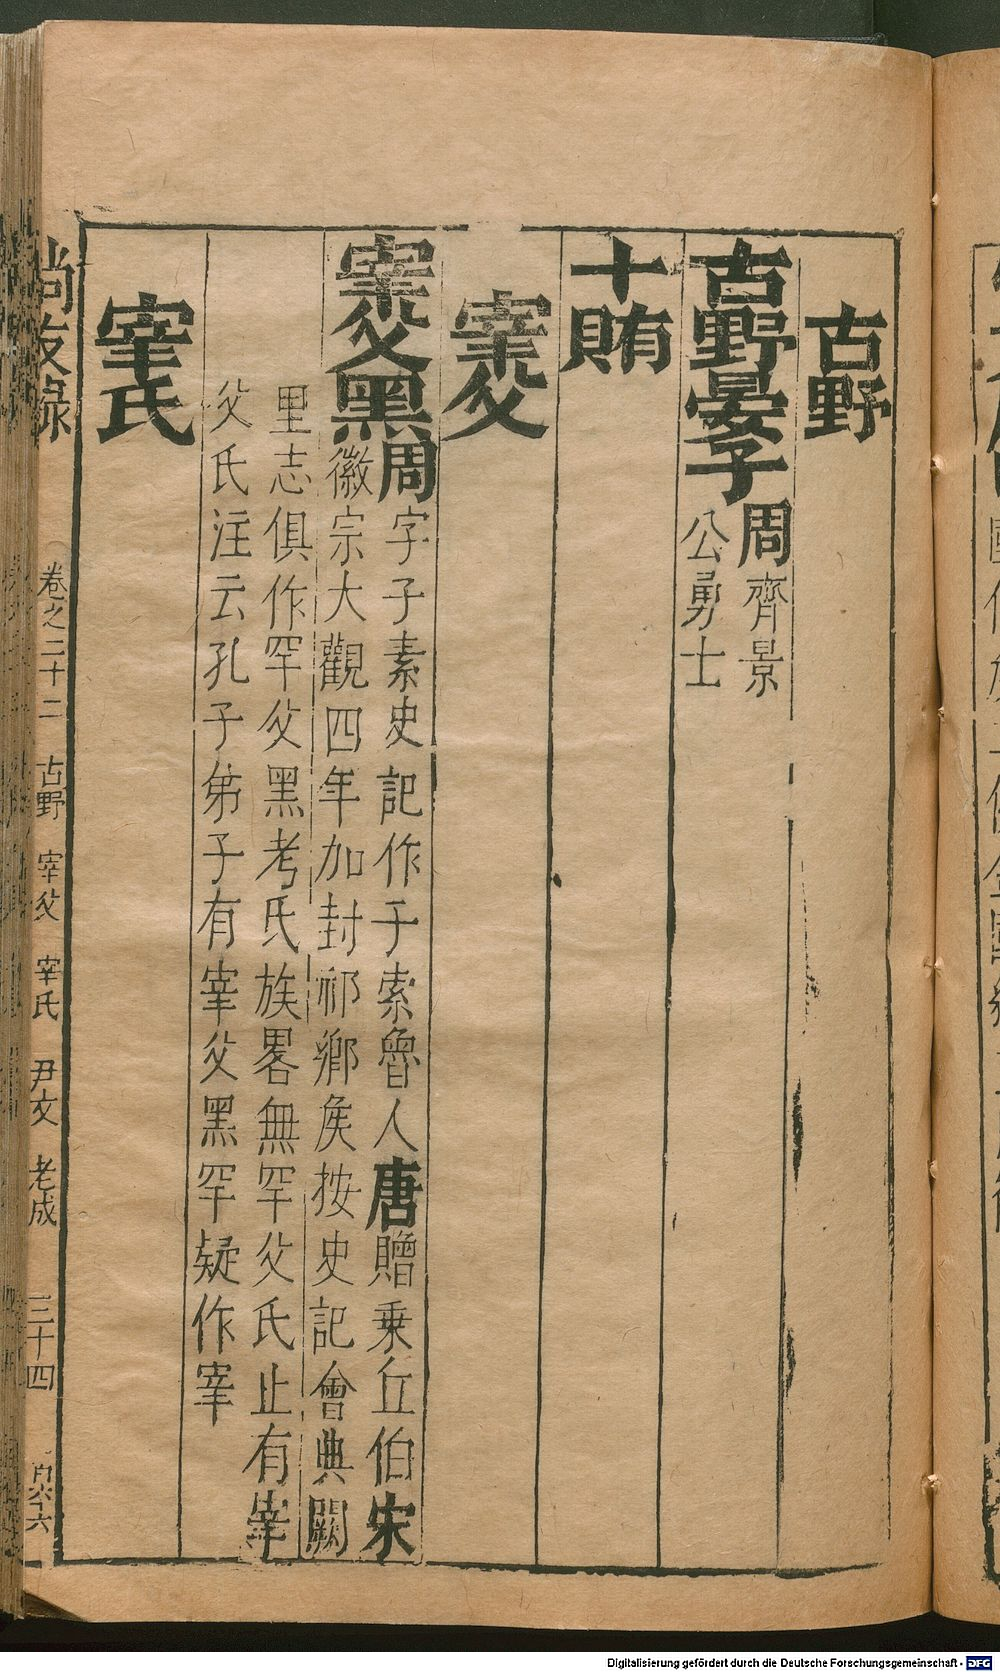 古野
古野晏子周齊景
公勇士
十賄
宰父
宰父黑周字子素史記作子索魯人唐贈乗丘伯宋
徽宗大觀四年加封祁鄉矦按史記會典闕
里志俱作罕父黑考氏族畧無罕父氏止有宰
父氏注云孔子弟子有宰父黑罕疑作宰
宰氏
尚友録 卷之二十二 古野 宰父 宰氏 尹文 老成 三十四
Digitalisierung gefördert durch die Deutsche Forschungsgemeinschaft - DFG